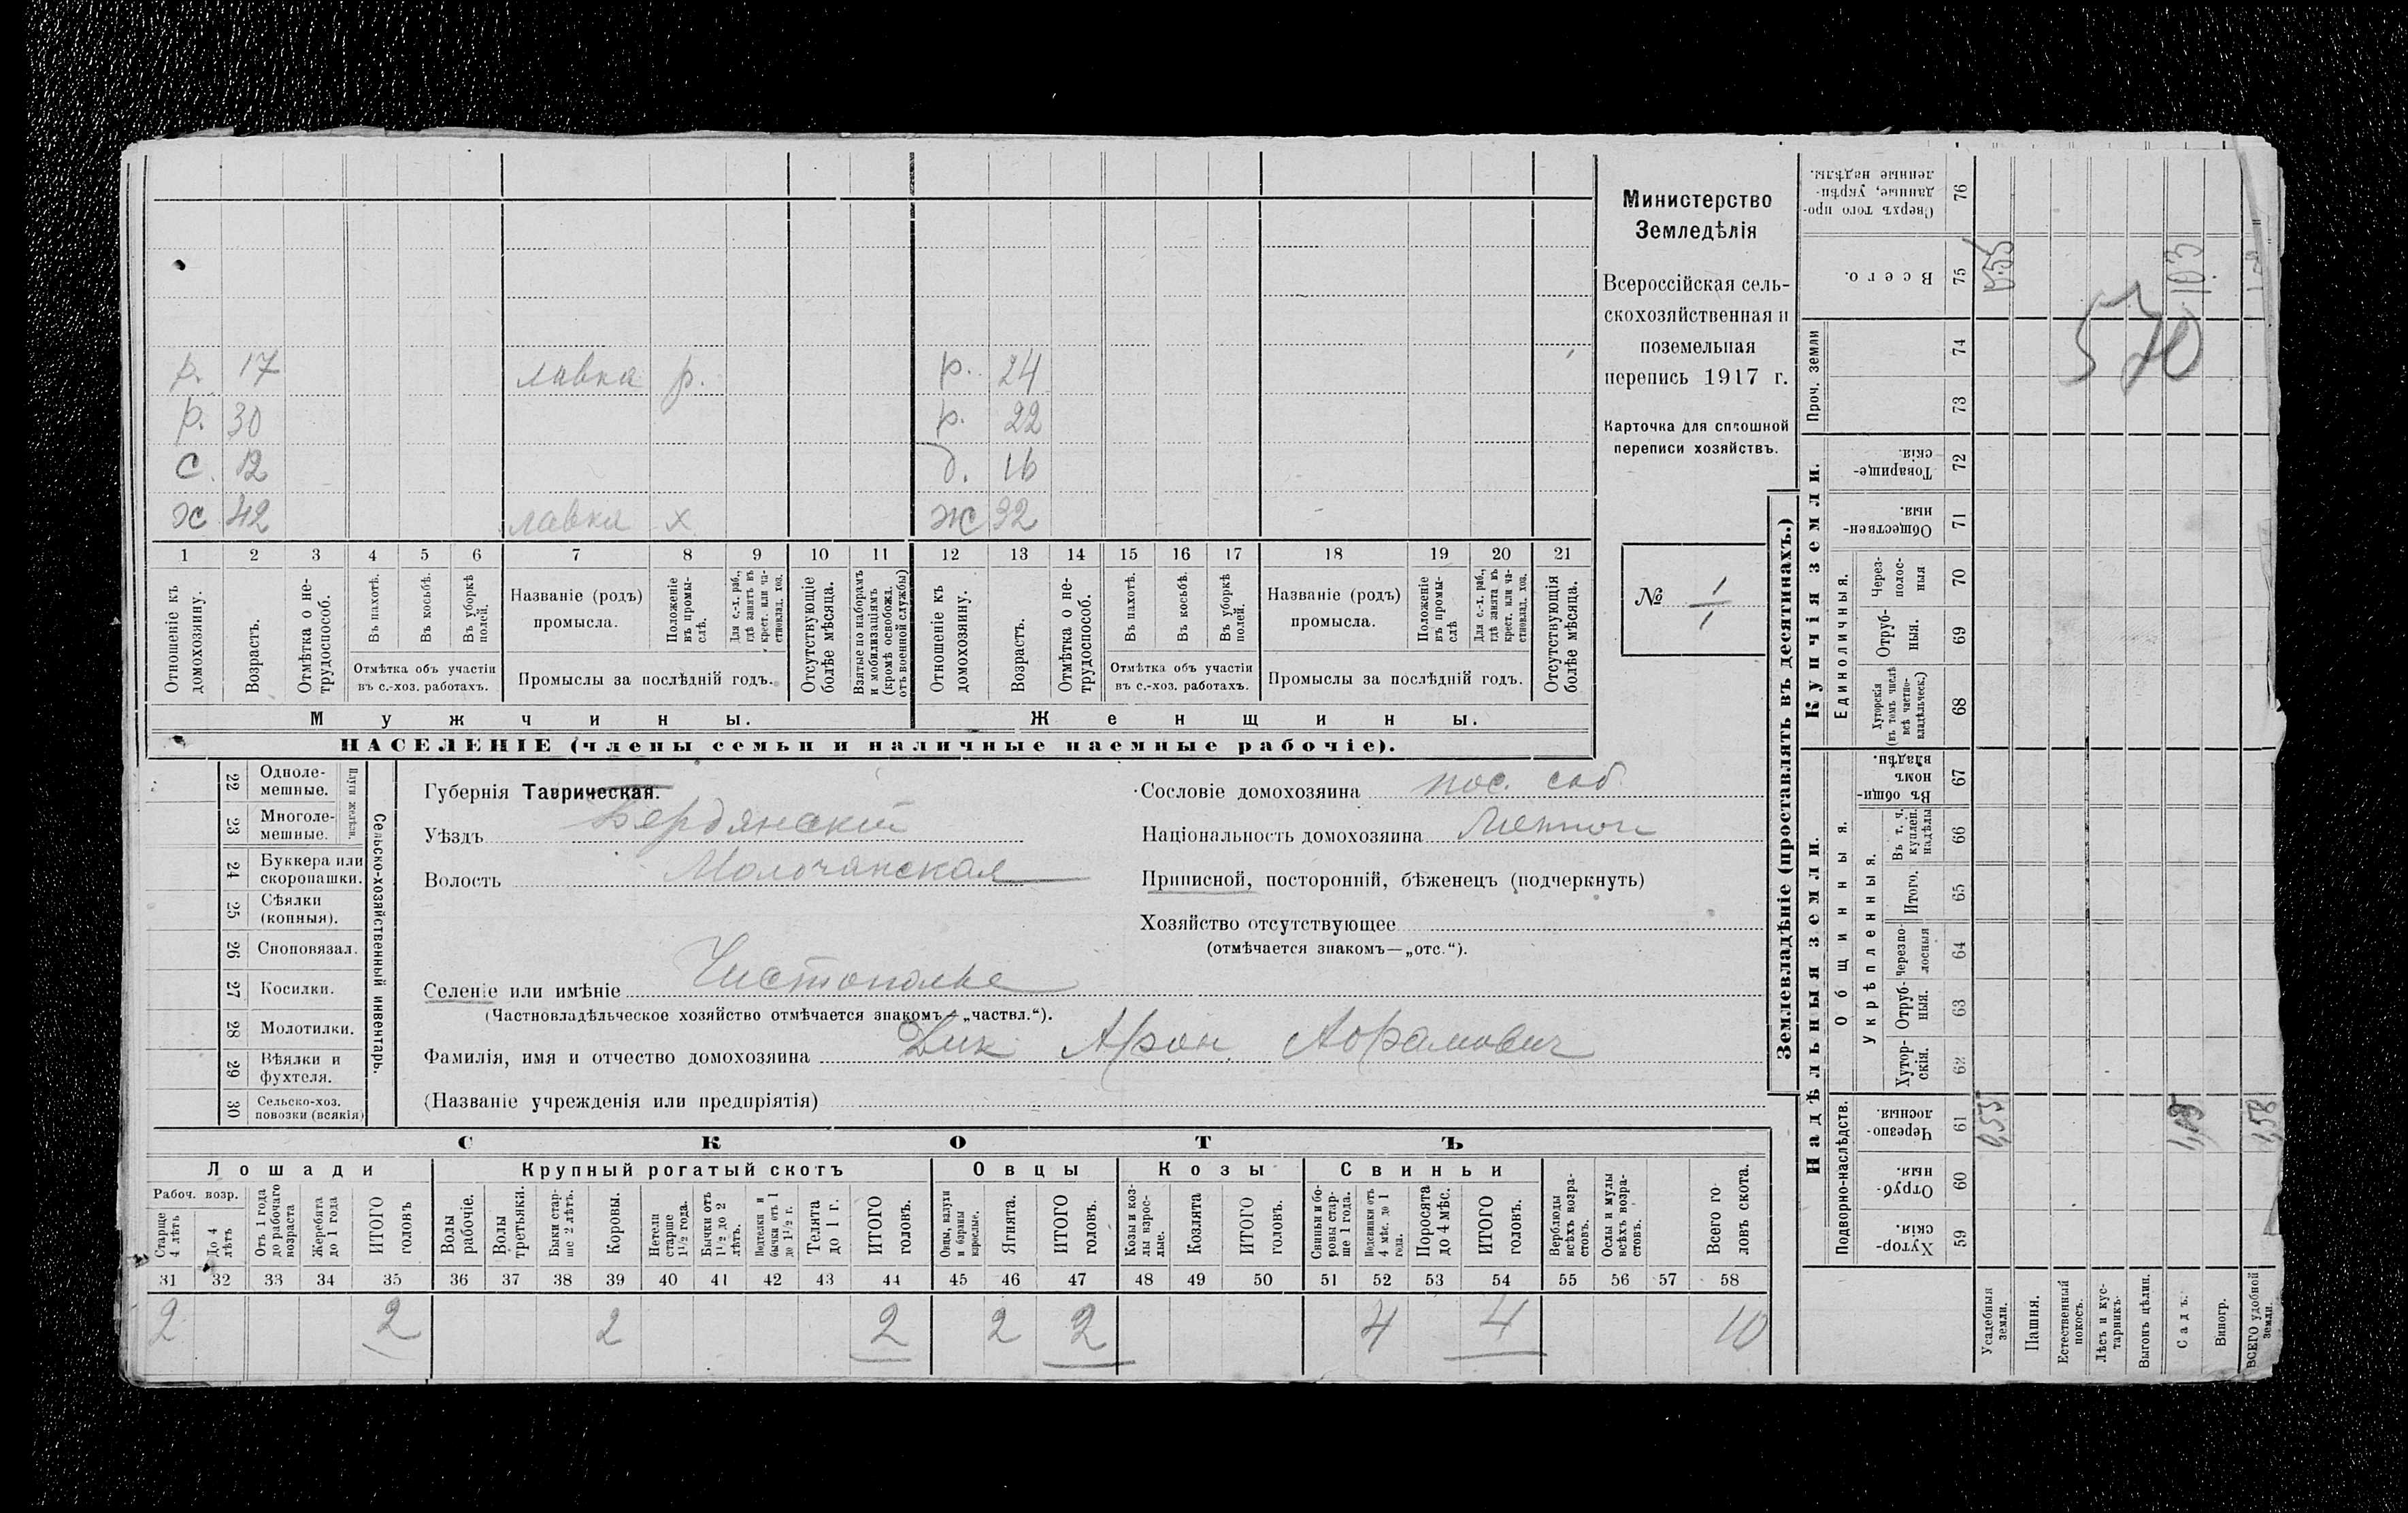 Министерство
Земледѣлія
Всероссійская сель-
скохозяйственная и
поземельная
перепись 1917 г.
Карточка для сплошной
переписи хозяйствъ.
№ 1/1
р. 17 лавка р. р. 24
р. 30 р. 22
с. 12 д. 16
х 42 лавка х ж 32
1 2 3 4 5 6 7 8 9 10 11 12 13 14 15 16 17 18 19 20 21
Отношеніе къ домохозяину.
Возрастъ.
Отмѣтка о не-трудоспособ.
Въ пахотѣ.
Въ косьбѣ.
Въ уборкѣ полей.
Отмѣтка объ участіи
въ с.-хоз. работахъ.
Названіе (родъ)
промысла.
Положеніе въ промы-слѣ.
Для с.-х. раб., гдѣ занятъ въ крест. или ча-стновлад. хоз.
Промыслы за послѣдній годъ.
Отсутствующіе болѣе мѣсяца.
Взятые по наборамъ и мобилизаціямъ (кромѣ освобожд. отъ военной службы)
Отношеніе къ домохозяину.
Возрастъ.
Отмѣтка о не-трудоспособ.
Въ пахотѣ.
Въ косьбѣ.
Въ уборкѣ полей.
Отмѣтка объ участіи
въ с.-хоз. работахъ.
Названіе (родъ)
промысла.
Положеніе въ промы-слѣ
Для с.-х. раб., гдѣ занята въ крест. или ча-стновлад. хоз.
Промыслы за послѣдній годъ.
Отсутствующія болѣе мѣсяца.
Мужчины. Женщины.
НАСЕЛЕНІЕ (члены семьи и наличные наемные рабочіе).
Сельско-хозяйственный инвентарь.
Плуги желѣзн.
22 Одноле-мешные.
23 Многоле-мешные.
24 Буккера или скоропашки.
25 Сѣялки (конныя).
26 Сноповязал.
27 Косилки.
28 Молотилки.
29 Вѣялки и фухтеля.
30 Сельско-хоз. повозки (всякія)
Губернія Таврическая.
Уѣздъ Бердянскій
Волость Молочанская
Селеніе или имѣніе Чистополье
(Частновладѣльческое хозяйство отмѣчается знакомъ—„частвл.“).
Фамилія, имя и отчество домохозяина Дик Арон Абрамович
(Названіе учрежденія или предпріятія)
Сословіе домохозяина пос. соб.
Національность домохозяина
Приписной, посторонній, бѣженецъ (подчеркнуть)
Хозяйство отсутствующее
(отмѣчается знакомъ—„отс.“).
СКОТЪ
Лошади Крупный рогатый скотъ Овцы Козы Свиньи
Рабоч. возр.
Старше 4 лѣтъ
До 4 лѣтъ
Отъ 1 года до рабочаго возраста
Жеребята до 1 года
ИТОГО головъ
Волы рабочіе.
Волы третьяки.
Быки стар-ше 2 лѣтъ.
Коровы.
Нетели старше 1½ года.
Бычки отъ 1½ до 2 лѣтъ.
Подтелки и бычки отъ 1 до 1½ г.
Телята до 1 г.
ИТОГО головъ.
Овцы, валухи и бараны взрослые.
Ягнята.
ИТОГО головъ.
Козы и коз-лы взрос-лые.
Козлята
ИТОГО головъ.
Свиньи и бо-ровы стар-ше 1 года.
Подсвинки отъ 4 мѣс. до 1 года.
Поросята до 4 мѣс.
ИТОГО головъ.
Верблюды всѣхъ возра-стовъ.
Ослы и мулы всѣхъ возра-стовъ.
Всего го-ловъ скота.
31 32 33 34 35 36 37 38 39 40 41 42 43 44 45 46 47 48 49 50 51 52 53 54 55 56 57 58
2 2 2 2 2 2 4 4 10
Землевладѣніе (проставлять въ десятинахъ.)
Надѣльныя земли.
Купчія земли.
Проч. земли
Подворно-наслѣдств.
Общинныя.
Укрѣпленныя.
Единоличныя.
76 Сверхъ того про-данные, укрѣп-ленные надѣлы.
75 Всего.
74
73
72 Товарище-скія.
71 Обществен-ныя.
70 Через-полос-ныя
69 Отруб-ныя.
68 Хуторскія (въ томъ числѣ всѣ частно-владѣльческ.)
67 Въ общин-номъ владѣн.
66 Въ т. ч. куплен. надѣлы
65 Итого.
64 Черезпо-лосныя
63 Отруб-ныя.
62 Хутор-скія.
61 Черезпо-лосныя.
60 Отруб-ныя.
59 Хутор-скія.
Усадебныя земли.
Пашня.
Естественный покосъ.
Лѣсъ и кус-тарникъ.
Выгонъ цѣлин.
Садъ.
Виногр.
ВСЕГО удобной земли.
0,55
570